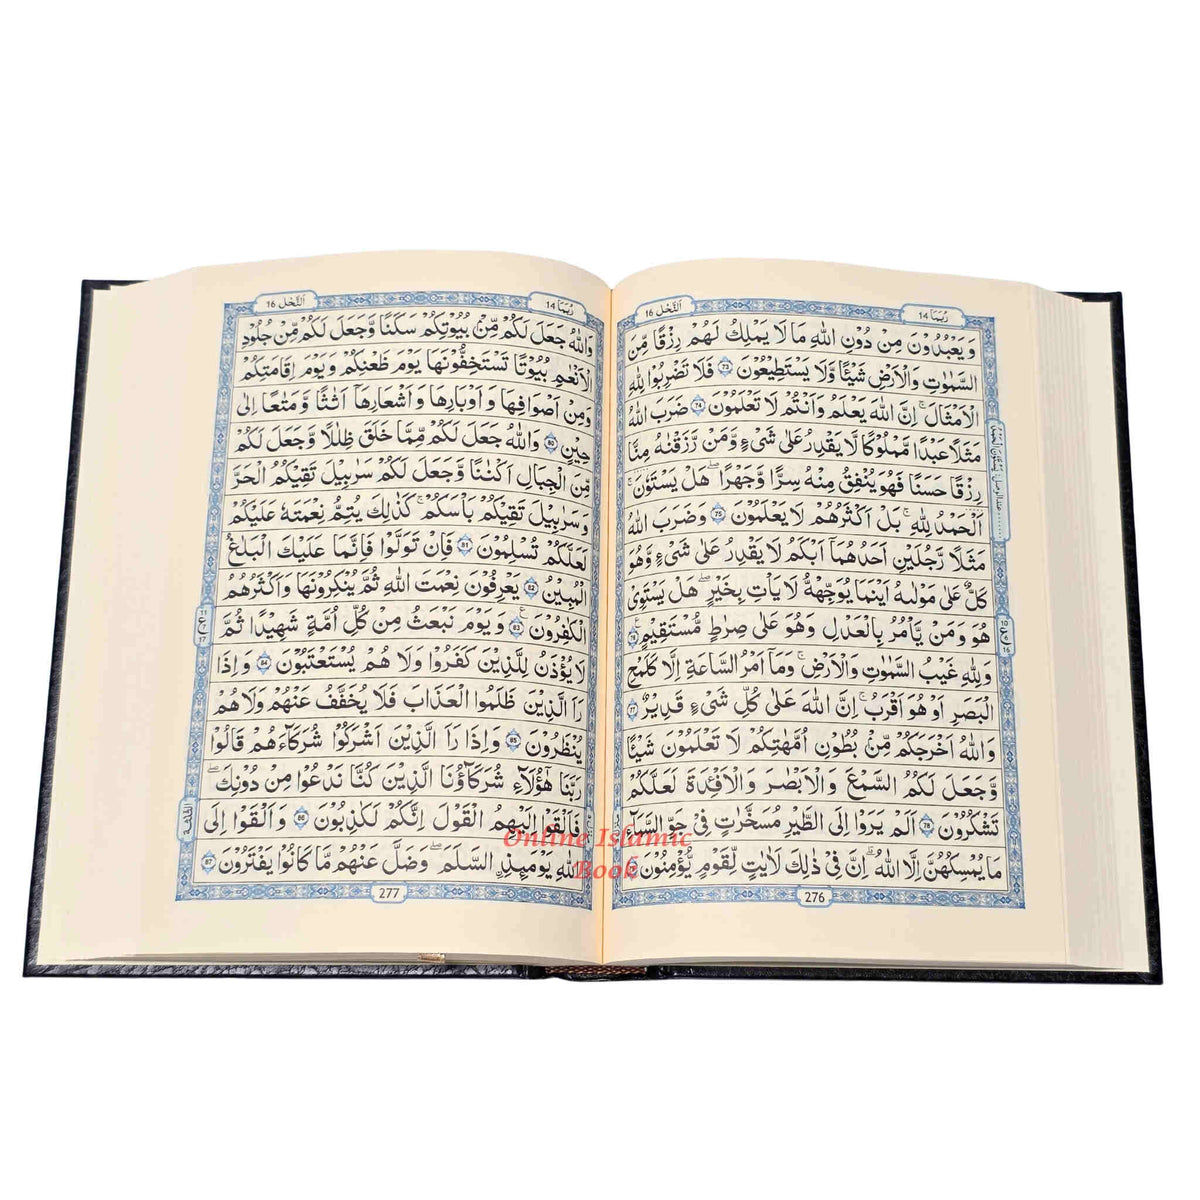 رُبَمَا 14
اَلنَّحْل 16
وَيَعْبُدُوْنَ مِنْ دُوْنِ اللّٰهِ مَا لَا يَمْلِكُ لَهُمْ رِزْقًا مِّنَ
السَّمٰوٰتِ وَالْاَرْضِ شَيْئًا وَّلَا يَسْتَطِيْعُوْنَ 73 فَلَا تَضْرِبُوْا لِلّٰهِ
الْاَمْثَالَ ؕ اِنَّ اللّٰهَ يَعْلَمُ وَاَنْتُمْ لَا تَعْلَمُوْنَ 74 ضَرَبَ اللّٰهُ
مَثَلًا عَبْدًا مَّمْلُوْكًا لَّا يَقْدِرُ عَلٰى شَیْءٍ وَّمَنْ رَّزَقْنٰهُ مِنَّا
رِزْقًا حَسَنًا فَهُوَ يُنْفِقُ مِنْهُ سِرًّا وَّجَهْرًا ؕ هَلْ يَسْتَوٗنَ ؕ
اَلْحَمْدُ لِلّٰهِ ؕ بَلْ اَكْثَرُهُمْ لَا يَعْلَمُوْنَ 75 وَضَرَبَ اللّٰهُ
مَثَلًا رَّجُلَيْنِ اَحَدُهُمَاۤ اَبْكَمُ لَا يَقْدِرُ عَلٰى شَیْءٍ وَّهُوَ
كَلٌّ عَلٰى مَوْلٰىهُ اَيْنَمَا يُوَجِّهْهُّ لَا يَاْتِ بِخَيْرٍ ؕ هَلْ يَسْتَوِیْ
هُوَ وَمَنْ يَّاْمُرُ بِالْعَدْلِ وَهُوَ عَلٰى صِرَاطٍ مُّسْتَقِيْمٍ 76
وَلِلّٰهِ غَيْبُ السَّمٰوٰتِ وَالْاَرْضِ ؕ وَمَاۤ اَمْرُ السَّاعَةِ اِلَّا كَلَمْحِ
الْبَصَرِ اَوْ هُوَ اَقْرَبُ ؕ اِنَّ اللّٰهَ عَلٰى كُلِّ شَیْءٍ قَدِيْرٌ 77
وَاللّٰهُ اَخْرَجَكُمْ مِّنْۢ بُطُوْنِ اُمَّهٰتِكُمْ لَا تَعْلَمُوْنَ شَيْئًا
وَّجَعَلَ لَكُمُ السَّمْعَ وَالْاَبْصَارَ وَالْاَفْـِٕدَةَ لَعَلَّكُمْ
تَشْكُرُوْنَ 78 اَلَمْ يَرَوْا اِلَى الطَّيْرِ مُسَخَّرٰتٍ فِیْ جَوِّ السَّمَآءِ
مَا يُمْسِكُهُنَّ اِلَّا اللّٰهُ ؕ اِنَّ فِیْ ذٰلِكَ لَاٰيٰتٍ لِّقَوْمٍ يُّؤْمِنُوْنَ
10
ع
16
276
رُبَمَا 14
اَلنَّحْل 16
وَاللّٰهُ جَعَلَ لَكُمْ مِّنْۢ بُيُوْتِكُمْ سَكَنًا وَّجَعَلَ لَكُمْ مِّنْ جُلُوْدِ
الْاَنْعَامِ بُيُوْتًا تَسْتَخِفُّوْنَهَا يَوْمَ ظَعْنِكُمْ وَيَوْمَ اِقَامَتِكُمْ
وَمِنْ اَصْوَافِهَا وَاَوْبَارِهَا وَاَشْعَارِهَاۤ اَثَاثًا وَّمَتَاعًا اِلٰى
حِيْنٍ 80 وَاللّٰهُ جَعَلَ لَكُمْ مِّمَّا خَلَقَ ظِلٰلًا وَّجَعَلَ لَكُمْ
مِّنَ الْجِبَالِ اَكْنَانًا وَّجَعَلَ لَكُمْ سَرَابِيْلَ تَقِيْكُمُ الْحَرَّ
وَسَرَابِيْلَ تَقِيْكُمْ بَاْسَكُمْ ؕ كَذٰلِكَ يُتِمُّ نِعْمَتَهٗ عَلَيْكُمْ
لَعَلَّكُمْ تُسْلِمُوْنَ 81 فَاِنْ تَوَلَّوْا فَاِنَّمَا عَلَيْكَ الْبَلٰغُ
الْمُبِيْنُ 82 يَعْرِفُوْنَ نِعْمَتَ اللّٰهِ ثُمَّ يُنْكِرُوْنَهَا وَاَكْثَرُهُمُ
الْكٰفِرُوْنَ 83 وَيَوْمَ نَبْعَثُ مِنْ كُلِّ اُمَّةٍ شَهِيْدًا ثُمَّ
لَا يُؤْذَنُ لِلَّذِيْنَ كَفَرُوْا وَلَا هُمْ يُسْتَعْتَبُوْنَ 84 وَاِذَا
رَاَ الَّذِيْنَ ظَلَمُوا الْعَذَابَ فَلَا يُخَفَّفُ عَنْهُمْ وَلَا هُمْ
يُنْظَرُوْنَ 85 وَاِذَا رَاَ الَّذِيْنَ اَشْرَكُوْا شُرَكَآءَهُمْ قَالُوْا
رَبَّنَا هٰۤؤُلَآءِ شُرَكَآؤُنَا الَّذِيْنَ كُنَّا نَدْعُوْا مِنْ دُوْنِكَ ۚ
فَاَلْقَوْا اِلَيْهِمُ الْقَوْلَ اِنَّكُمْ لَكٰذِبُوْنَ 86 وَاَلْقَوْا اِلَى
اللّٰهِ يَوْمَىِٕذِ ۣالسَّلَمَ وَضَلَّ عَنْهُمْ مَّا كَانُوْا يَفْتَرُوْنَ 87
11
ع
17
277
Online Islamic
Book